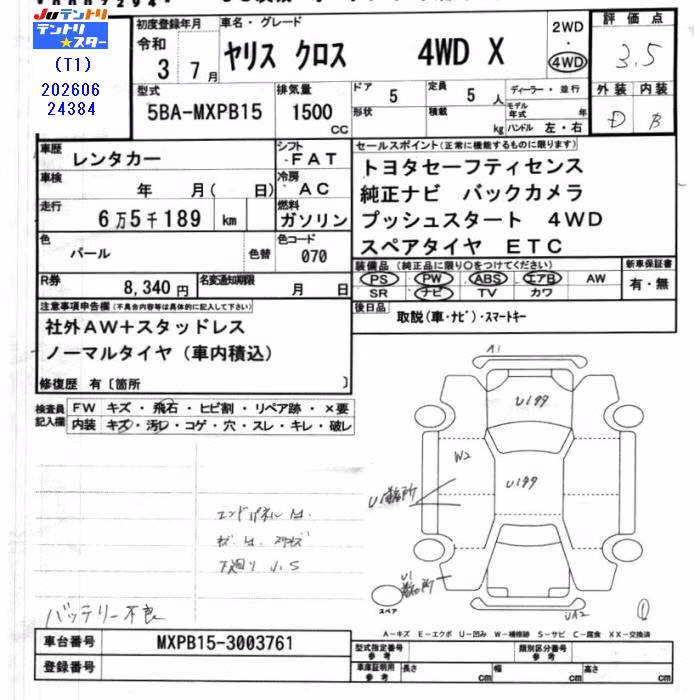 JUテントリ
テントリ
★スター
(T1)
202606
24384
初度登録年月
令和
3 7月
車名・グレード
ヤリス クロス 4WD X
2WD
・
4WD
評価点
3.5
型式
5BA-MXPB15
排気量
1500
CC
ドア
5
定員
5人
形状
積載
kg
ディーラー・並行
モデル年式 年式
ハンドル 左・右
外装 内装
D B
車歴
レンタカー
シフト
FAT
車検
年 月( 日)
冷房
AC
走行
6万5千189 km
燃料
ガソリン
色
パール
色替
色コード
070
R券
8,340円
名変通知期限
月 日
セールスポイント(正常に機能するものに限ります)
トヨタセーフティセンス
純正ナビ バックカメラ
プッシュスタート 4WD
スペアタイヤ ETC
装備品(純正品に限り○をつけてください)
PS PW ABS エアB AW
SR ナビ TV カワ
新車保証書
有・無
後日品
取説(車・ナビ)・スマートキー
注意事項申告欄(不具合内容等は具体的に記入して下さい)
社外AW+スタッドレス
ノーマルタイヤ(車内積込)
修復歴 有〔箇所 〕
検査員
記入欄
FW キズ・飛石・ヒビ割・リペア跡・×要
内装 キズ・汚レ・コゲ・穴・スレ・キレ・破レ
エンドパネル
下廻り U.S
バッテリー不良
A1
U199
W2
U199
U1
U1
スペア
UA2
①
A-キズ E-エクボ U-凹み W-補修跡 S-サビ C-腐食 XX-交換済
車台番号
MXPB15-3003761
登録番号
型式指定番号
参考
類別区分番号
参考
車庫証明用
参考
長さ cm
幅 cm
高さ cm